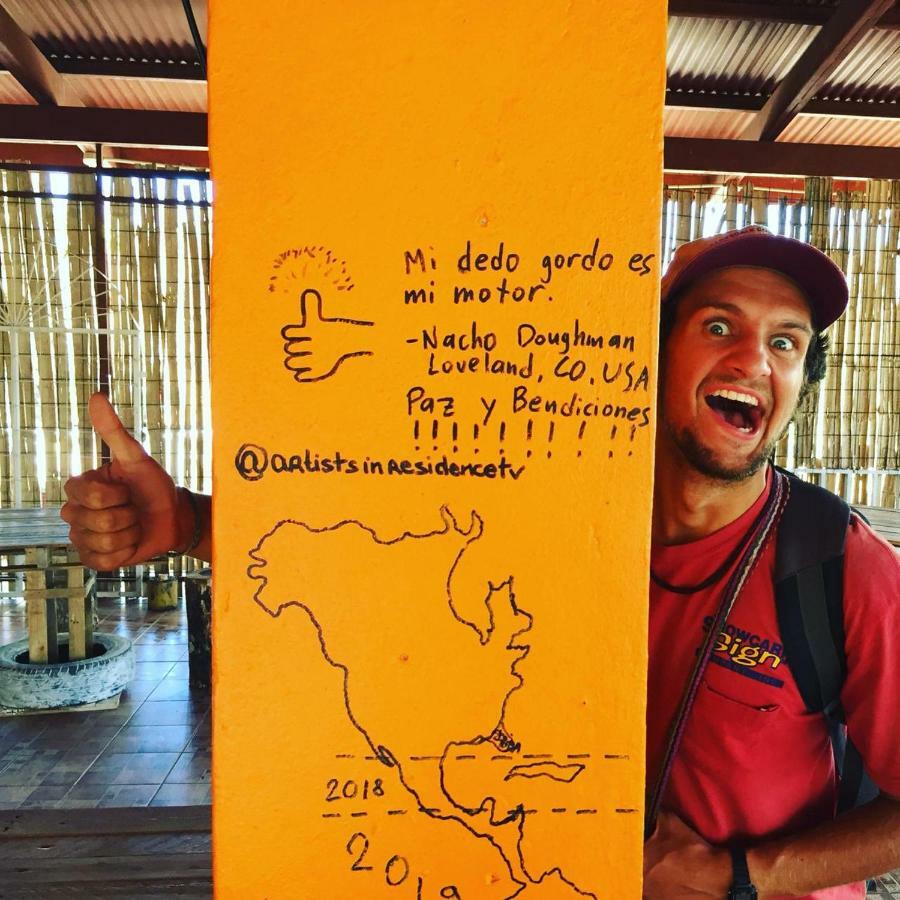 Mi dedo gordo es
mi motor.
-Nacho Doughman
Loveland, CO, USA
Paz y Bendiciones
! ! ! ! ! ! ! ! !
@artistsinresidencetv
2018
2019
Sign